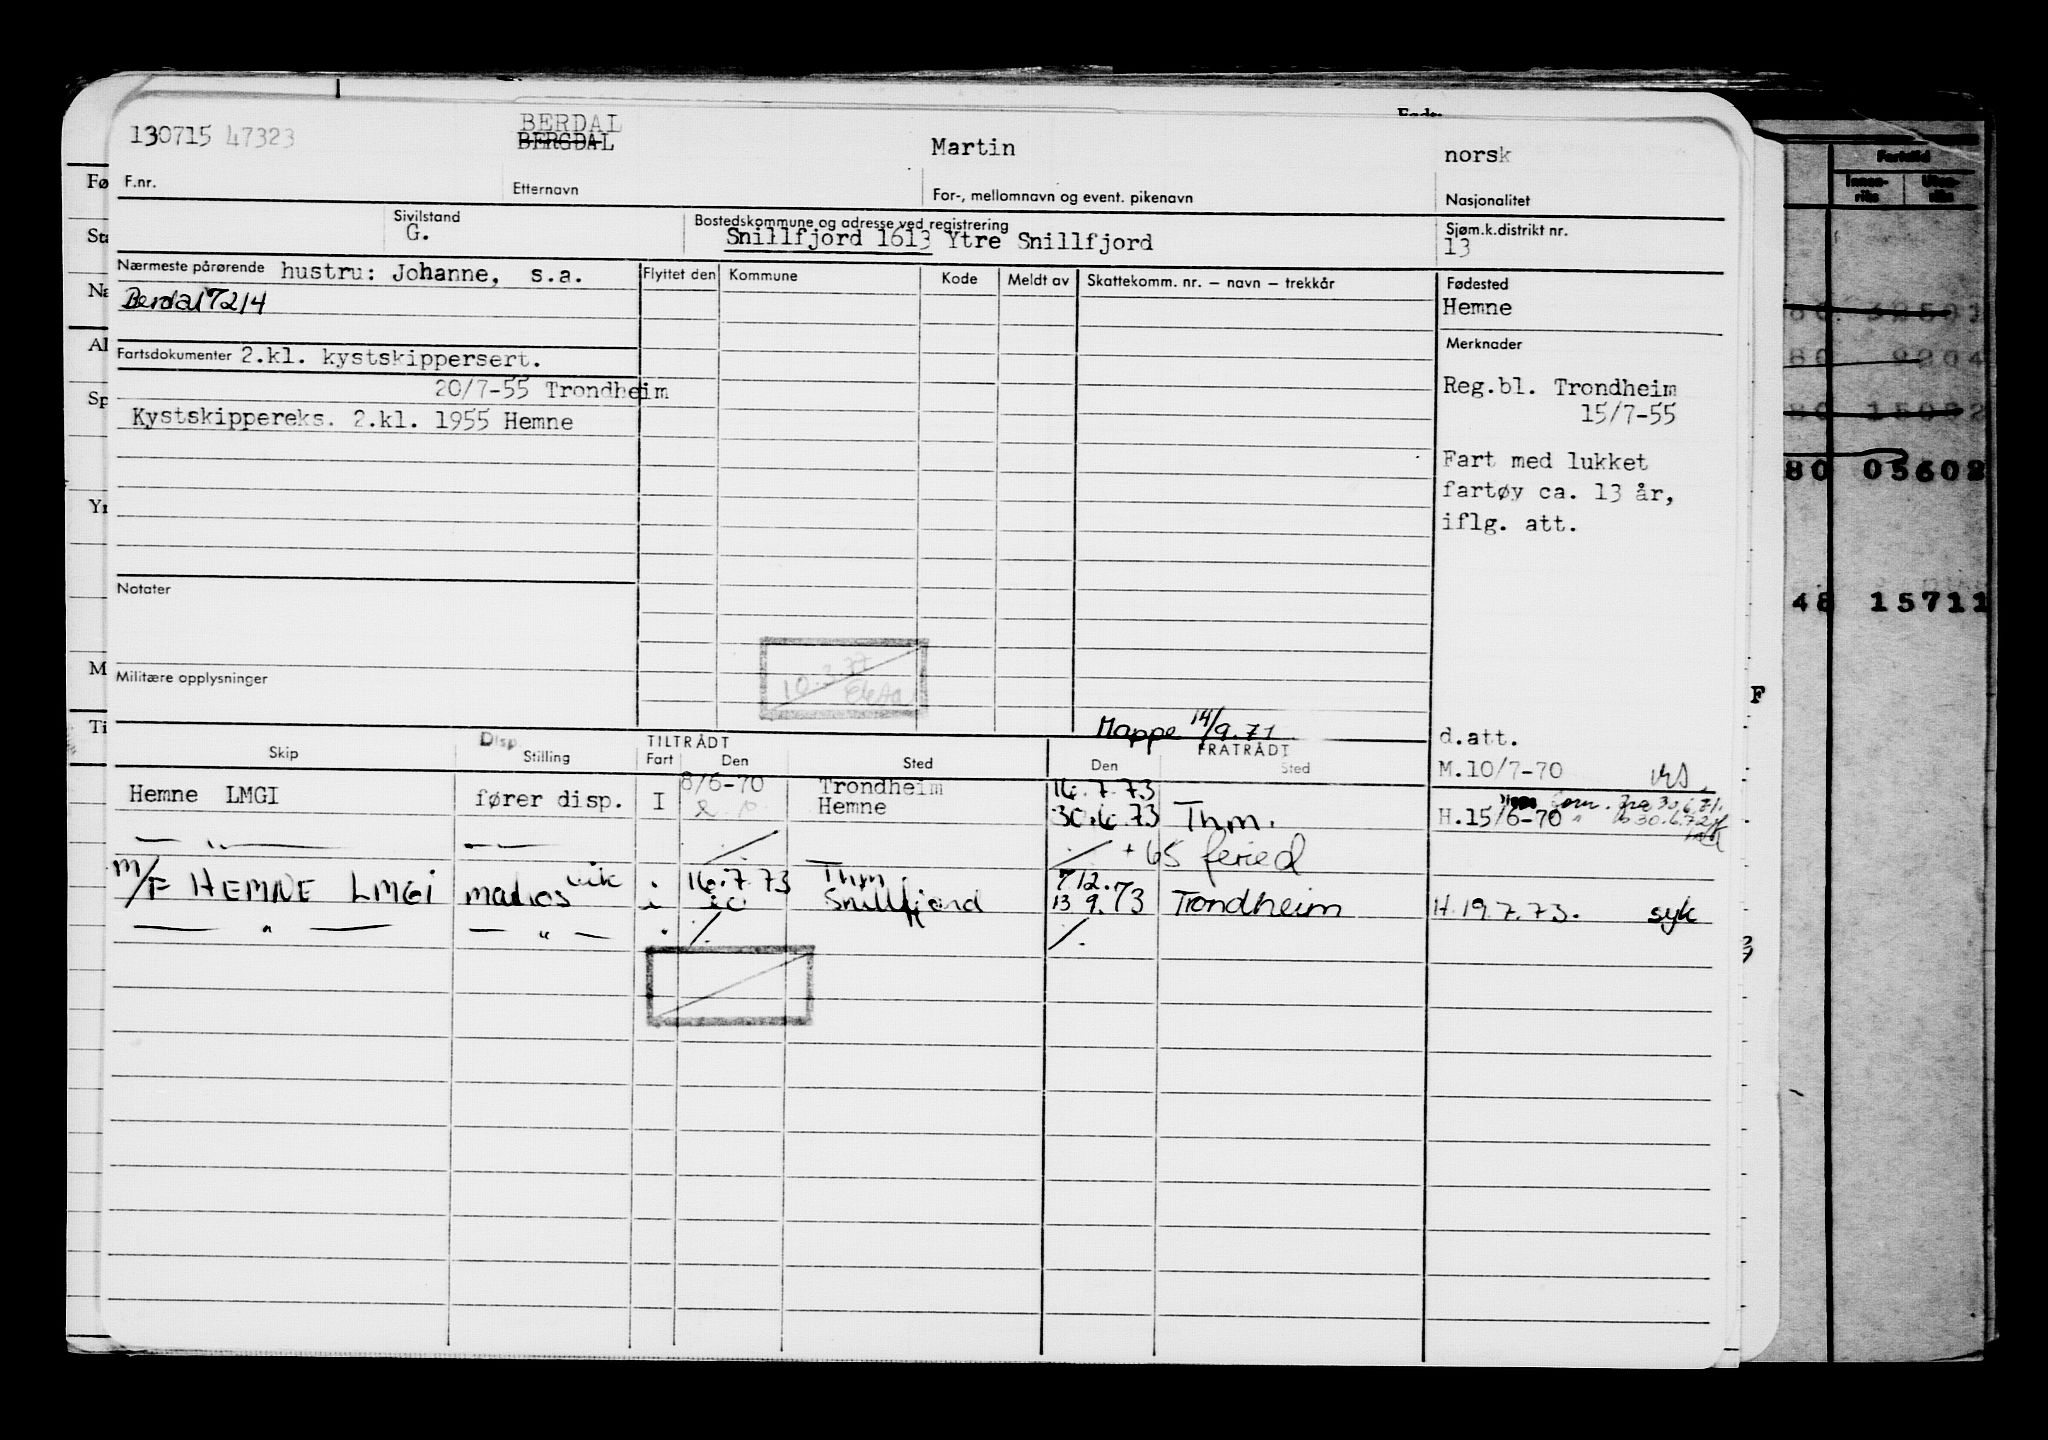 130715 47323
BERDAL
BERGDAL
Martin
norsk
F.nr.
Etternavn
For-, mellomnavn og event. pikenavn
Nasjonalitet
Sivilstand
G.
Bostedskommune og adresse ved registrering
Snillfjord 1613 Ytre Snillfjord
Sjøm.k.distrikt nr.
13
Nærmeste pårørende hustru: Johanne, s.a.
Berdal 7214
Flyttet den
Kommune
Kode
Meldt av
Skattekomm. nr. – navn – trekkår
Fødested
Hemne
Merknader
Fartsdokumenter 2.kl. kystskippersert.
20/7-55 Trondheim
Kystskippereks. 2.kl. 1955 Hemne
Reg.bl. Trondheim
15/7-55
Fart med lukket
fartøy ca. 13 år,
iflg. att.
Notater
Militære opplysninger
10.3.77
Mappe 14/9.71
d.att.
M.10/7-70
Disp
TILTRÅDT
FRATRÅDT
Skip
Stilling
Fart
Den
Sted
Den
Sted
Hemne LMGI
fører disp.
I
8/6-70
Trondheim
Hemne
16.7.73
30.6.73
Thm.
H.15/6-70
— " —
— —
./.
./. + 65 feried
M/F HEMNE LMGI
matros vik
i
16.7.73
Thm.
Snillfjord
7 12.73
13 9.73
Trondheim
H.19.7.73.
syk
— " —
— " —
./.
./.
Fartstid
Innen-
riks
Uten-
riks
80 32501
80 9204
80 15082
80 05602
48 15711
F